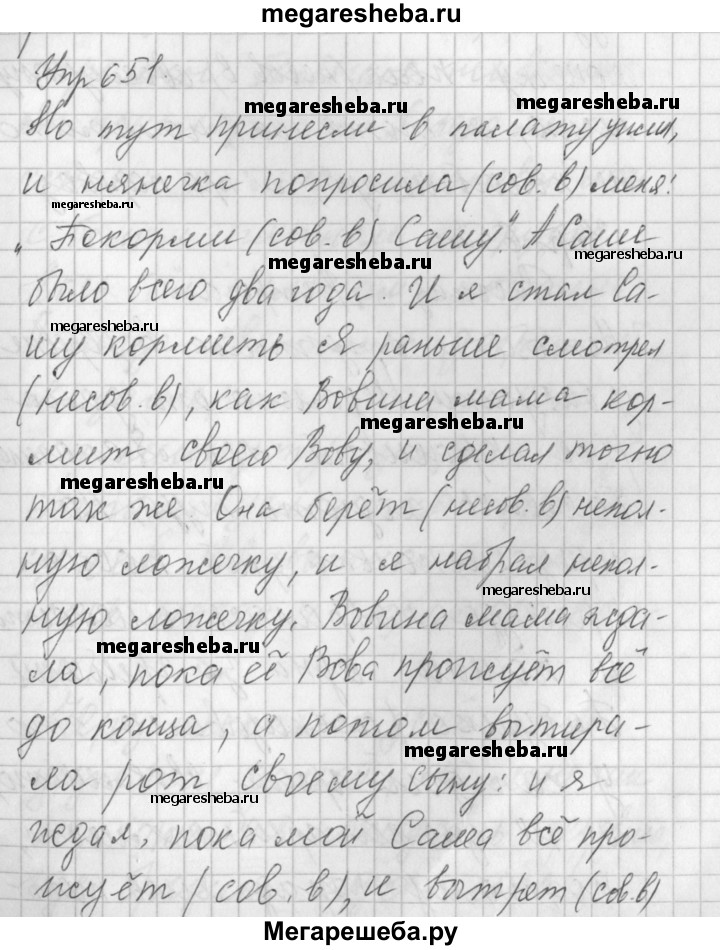 megaresheba.ru
Упр 651.
megaresheba.ru
megaresheba.ru
Но тут принесли в палату ужин,
и нянечка попросила (сов. в) меня:
megaresheba.ru
„Покорми (сов. в) Сашу". А Саше
megaresheba.ru
megaresheba.ru
было всего два года. И я стал Са-
megaresheba.ru
шу кормить Я раньше смотрел
(несов. в), как Вовина мама кор-
megaresheba.ru
мит своего Вову, и сделал точно
megaresheba.ru
так же. Она берёт (несов. в) непол-
ную ложечку, и я набрал непол-
megaresheba.ru
ную ложечку. Вовина мама жда-
megaresheba.ru
ла, пока её Вова прожуёт всё
до конца, а потом вытира-
megaresheba.ru
ла рот своему сыну: и я
megaresheba.ru
ждал, пока мой Саша всё про-
жуёт (сов. в), и вытрет (сов. в)
Мегарешеба.ру